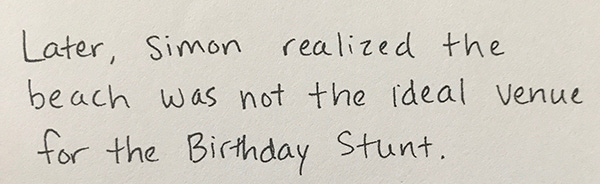 Later, Simon realized the
beach was not the ideal venue
for the Birthday Stunt.